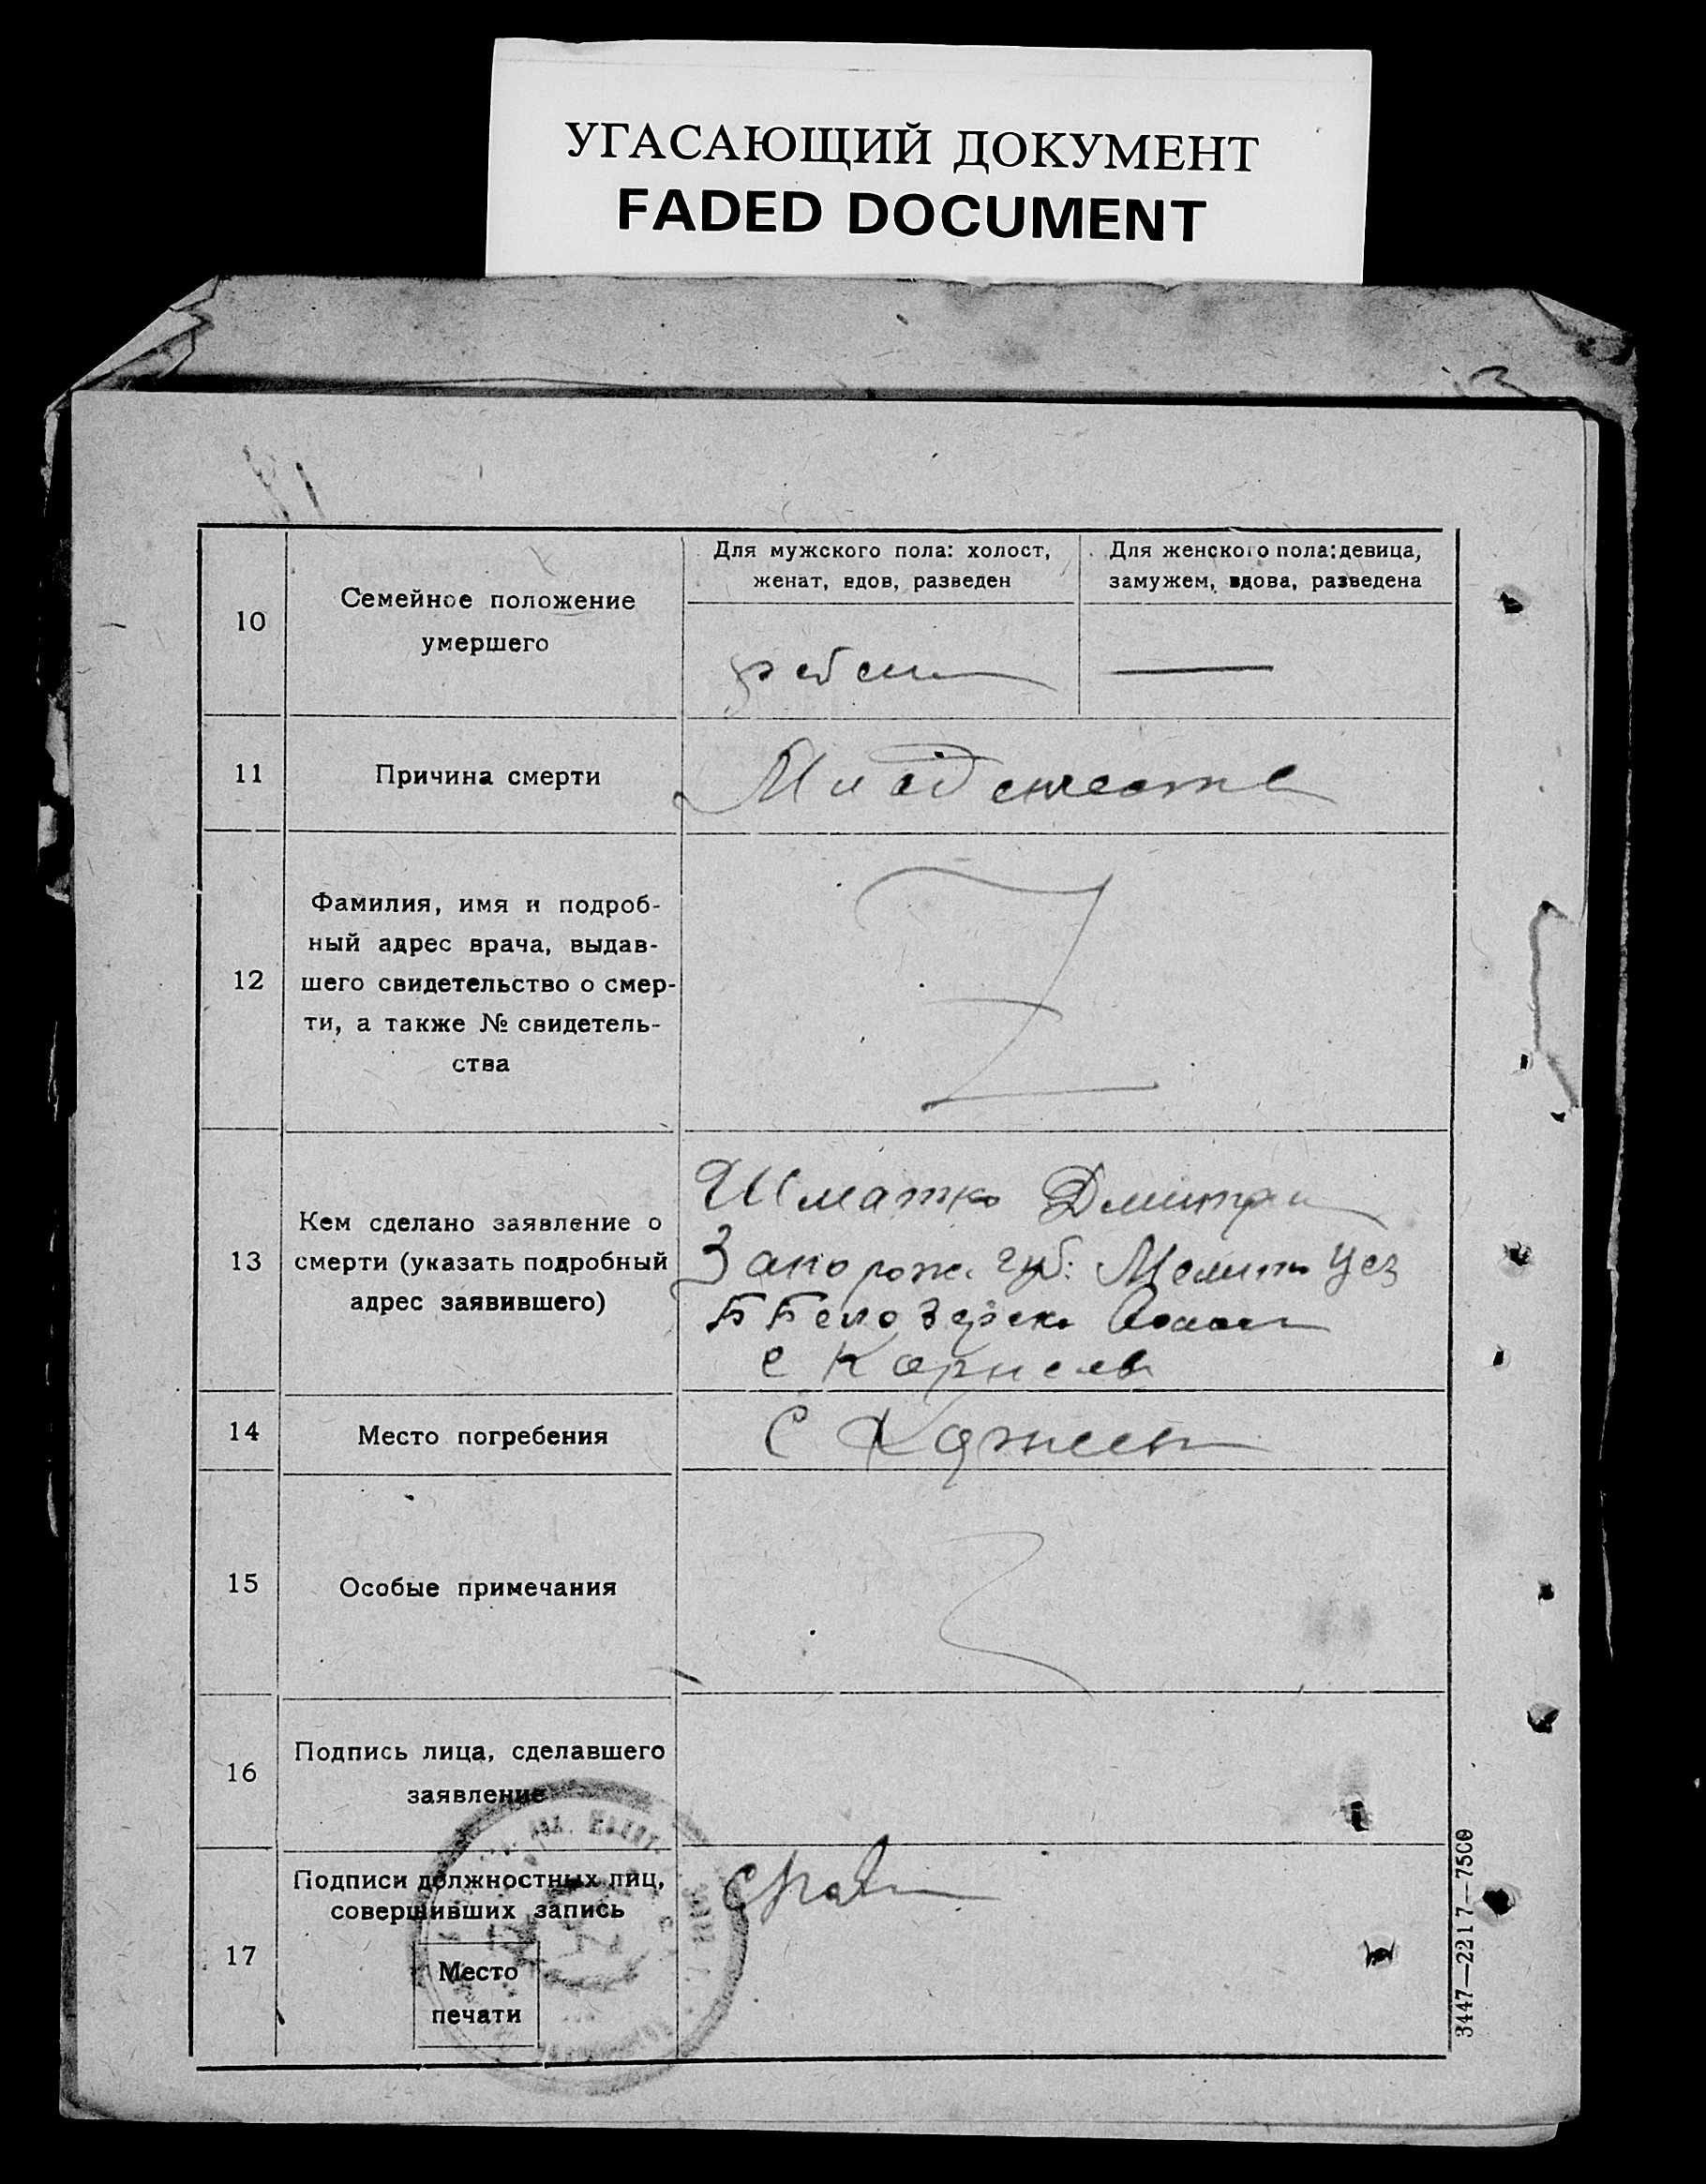 УГАСАЮЩИЙ ДОКУМЕНТ
FADED DOCUMENT
10
Семейное положение
умершего
Для мужского пола: холост,
женат, вдов, разведен
Для женского пола: девица,
замужем, вдова, разведена
11
Причина смерти
12
Фамилия, имя и подроб-
ный адрес врача, выдав-
шего свидетельство о смер-
ти, а также № свидетель-
ства
13
Кем сделано заявление о
смерти (указать подробный
адрес заявившего)
Шматко Дмитри
Запорож. губ. Мелит Уез
Б Белозерск
с
14
Место погребения
С
15
Особые примечания
16
Подпись лица, сделавшего
заявление
17
Подписи должностных лиц,
совершивших запись
Место
печати
3447—2217—7500